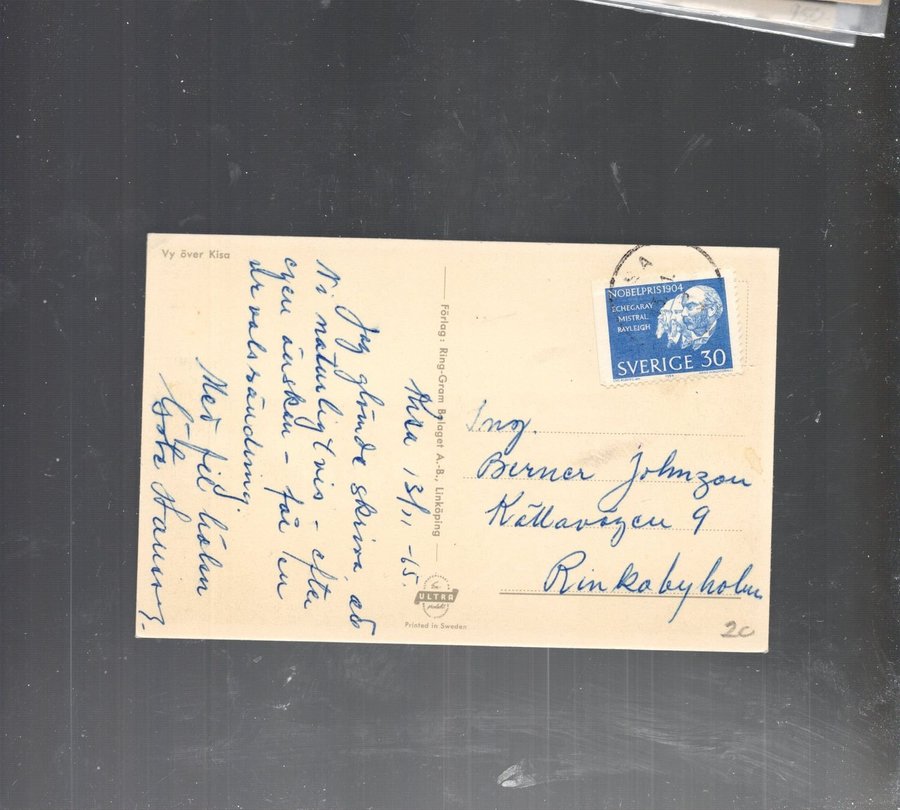 Vy över Kisa
Kisa 13/11 -65.
Jag glömde skriva att
Ni naturligtvis - efter
egen önskan - får en
urvalssändning.
Med fil hälsn
Gösta
Förlag: Ring-Gram Bolaget A.-B., Linköping
En
ULTRA
produkt
Printed in Sweden
NOBELPRIS 1904
ECHEGARAY
MISTRAL
RAYLEIGH
SVERIGE 30
Ing.
Berner Johnzon
Källavägen 9
Rinkabyholm
20